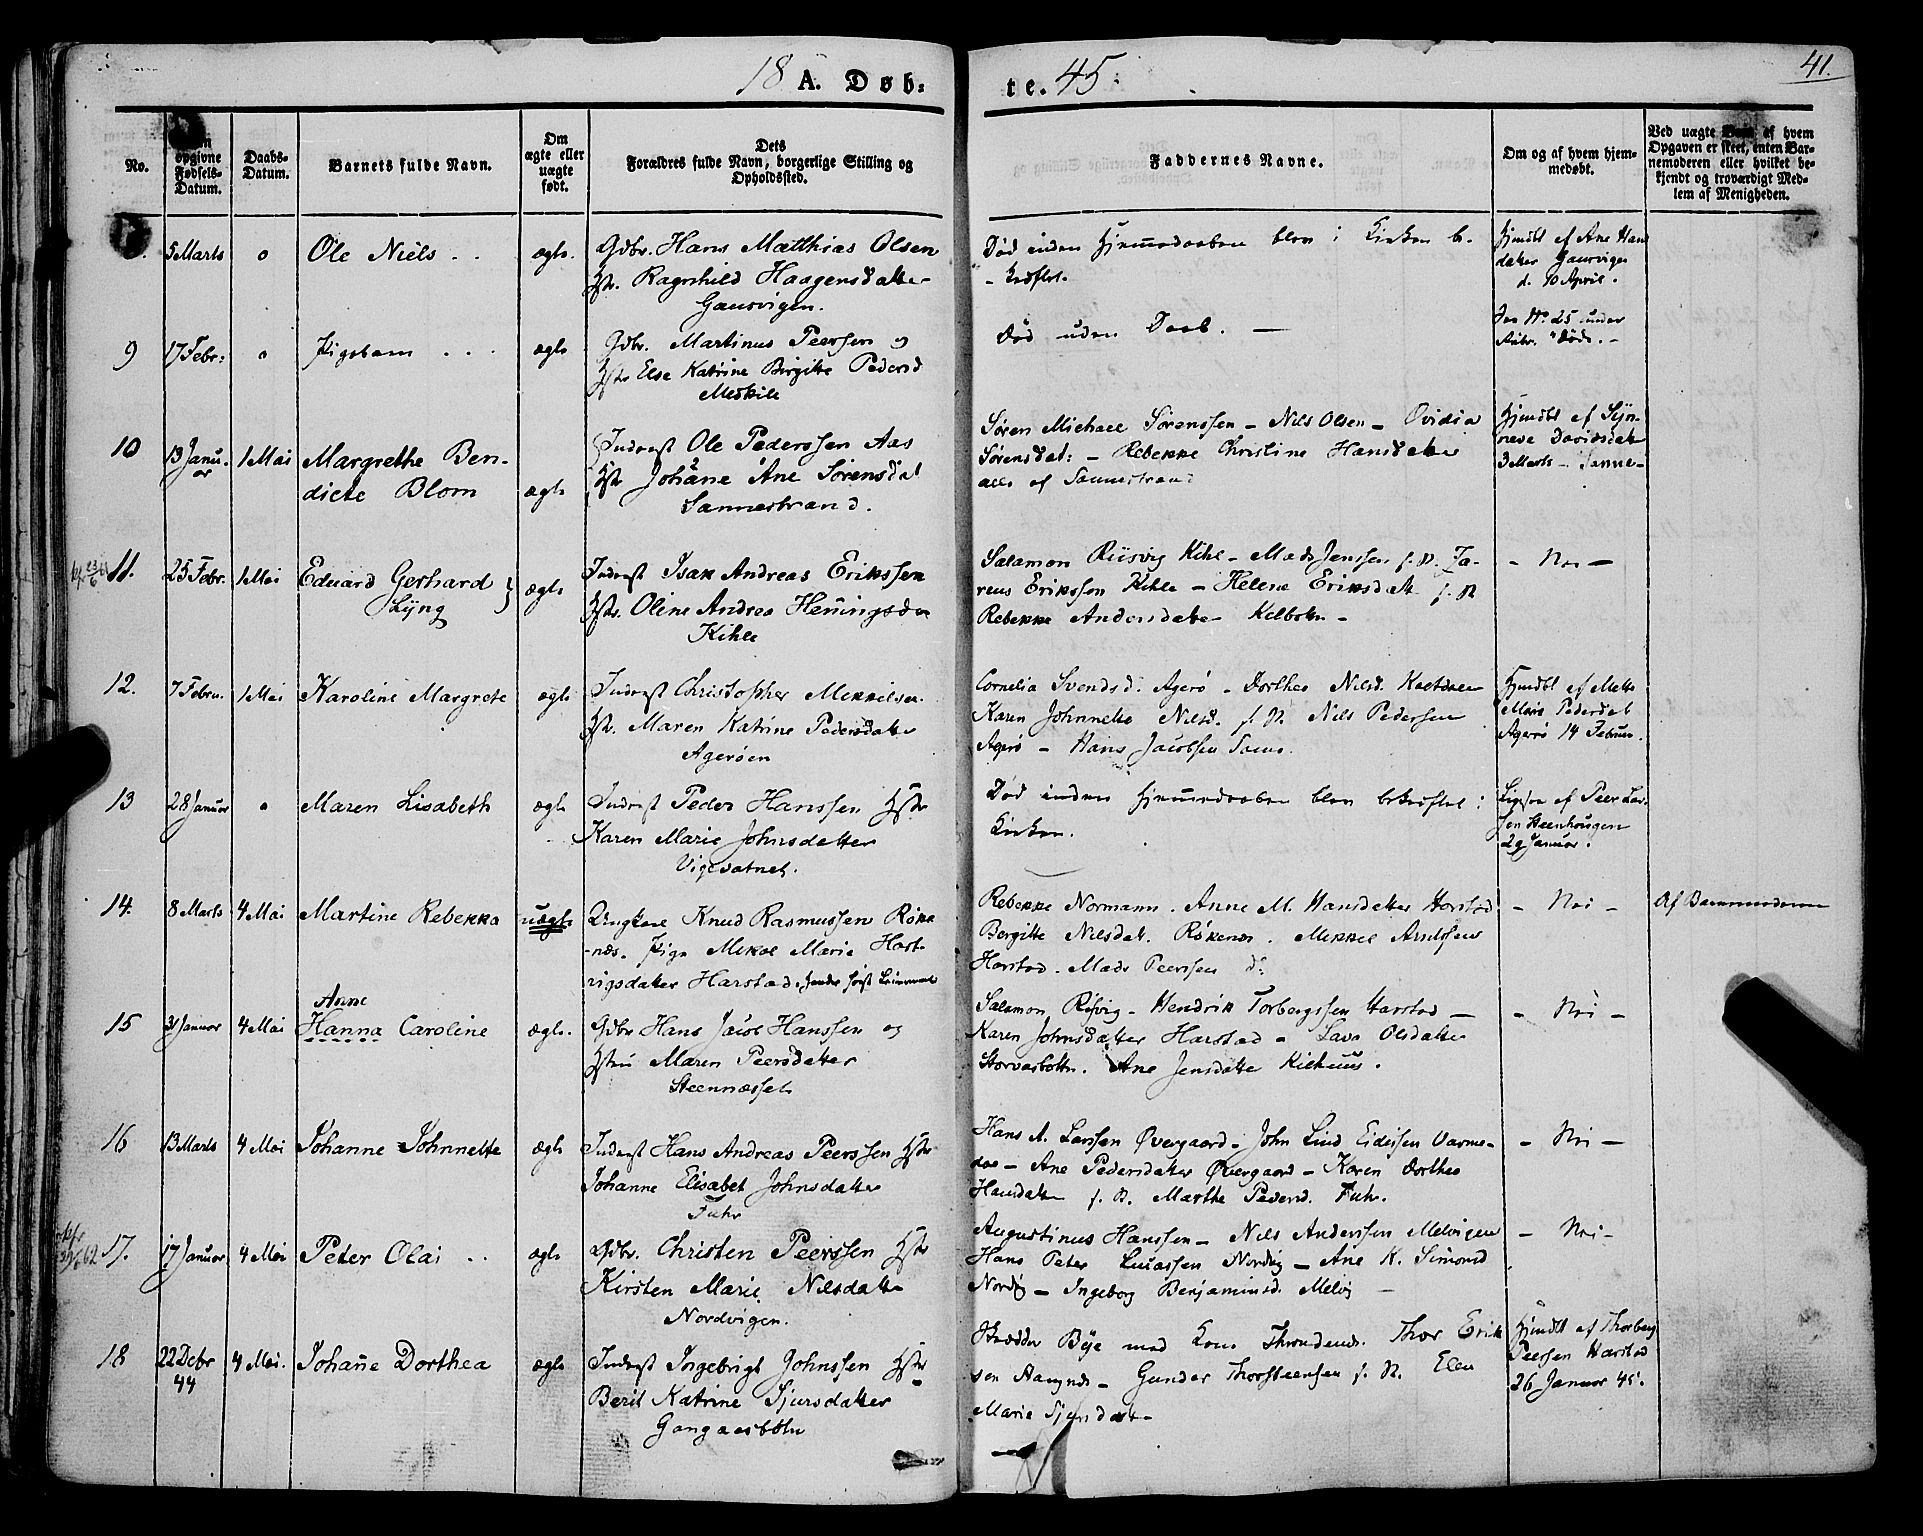 18 A. Døbte. 45.
41.
No.
opgivne Fødsels-Datum.
Daabs-Datum.
Barnets fulde Navn.
Om ægte eller uægte født.
Dets Forældres fulde Navn, borgerlige Stilling og Opholdssted.
Faddernes Navne.
Om og af hvem hjemmedøbt.
Ved uægte Børn af hvem
Opgaven er skeet, enten Bar-
nemoderen eller hvilket be-
kjendt og troværdigt Med-
lem af Menigheden.
5 Marts
o
Ole Niels . .
ægte.
Gdbr. Hans Matthias Olsen
Hstr. Ragnhild Haagensdatter
Gausvigen.
Død inden Hjemmedaaben blev i Kirken be-
kræftet.
Hjemdbt af Ane Hans
datter Gausvigen
d. 10 April.
9
17 Febr:
o
Pigebarn . . .
ægte
Gdbr. Martinus Peersen og
Hstr Else Katrine Birgitte Pedersd
Meskile
Død uden Daab. —
See No 25 under
Aubr. "Døde. —
10
13 Janu-
ar
1 Mai
Margrethe Ben-
dicte Blom
ægte
Inderst Ole Pederssen Aas
Hst Johane Ane Sørensdat
Sannestrand.
Søren Michael Sørenssen — Nils Olsen — Ovidia
Sørensdat: — Rebekke Christine Hansdatter
alle af Sannestrand
Hjemdbt af Syn-
neve Davidsdat
3 Marts — Sanne-
11.
25 Febr.
1 Mai
Eduard Gerhard
Lyng
ægte
Inderst Isak Andreas Erikssen
Hstr. Oline Andrea Hemingsda
Kihle
Salamon Riisvig Kihl — Mads Jenssen s. St. Za-
reus Eriksson Kihle — Helene Eriksdatt s. St
Rebekke Andersdatter Kilbotn —
— Nei —
12.
7 Febru.
1 Mai
Karoline Margrete
ægte
Inderst Christopher Mikkelsen
Hstr. Maren Katrine Pedersdatter
Agerøen
Cornelia Svendsd. Agerø — Dorthea Nilsd.
Karen Johnnette Nilsd. s. St. Nils Pedersen
Agerø — Hans Jacobsen
Hjemdbt af Mette
Marie Pedersdat
Agerø 14 Februar.
13
28 Januar
o
Maren Lisabeth
ægte
Inderst Peder Hanssen Hstr
Karen Marie Johnsdatter
Vigevatnet.
Død inden Hjemmedaaben blev bekræftet i
Kirken.
Ligesaa af Peer Lar-
sen Steenhougen
29 Januar.
14.
8 Marts
4 Mai
Martine Rebekka
uægte.
Ungkarl Knud Rasmussen Røke-
næs. Pige Mikal Marie Hart-
vigsdatter Harstad.
Rebekke Normann. Anne M. Hansdatter Harstad
Bergitte Nilsdat. Røkenes. Mikkel Arntssen
Harstad. Mads Peerssen d:
— Nei —
Af Barnemoderen
15
31 Januar
4 Mai
Anne
Hanna Caroline
ægte.
Gdbr Hans Jacob Hanssen og
Hstru Maren Peersdatter
Steennæsset
Salamon Riisvig — Hendrik Torbergssen Harstad —
Karen Johnsdatter Harstad — Lava Olsdatter
Storvasbotn. Ane Jensdatter Kilhuus.
— Nei —
16
13 Marts
4 Mai
Johanne Johnnette
ægte
Inderst Hans Andreas Peerssen Hstr
Johanne Elisabet Johnsdatter
Fuhr
Hans A. Larssen Øvergaard — John Lind Eidissen Varme-
dal — Ane Pedersdatter Øvergaard — Karen Dorthea
Hansdatter s. St. Marthe Pedersd. Fuhr.
— Nei —
17.
17 Januar
4 Mai
Peter Olai . .
ægte
Gdbr. Christen Peerssen Hstr
Kirsten Marie Nilsdatter
Nordvigen.
Augustinus Hanssen — Nils Anderssen Melvigen
Hans Peter Lucassen Nordvig — Ane K. Simonsd
Nordvig — Ingeborg Benjaminsd. Melvig —
— Nei —
18
22 Debr
44
4 Mai.
Johañe Dorthea
ægte
Inderst Ingebrigt Johnssen Hstr
Berit Katrine Sjursdatter
Gangaasbotn
Skrædder Bye med Kone Throndenes. Thor Erik
sen Aarnes — Gunder Thorsteensen s. St. Elen
Marie Sjursdatter
Hjemdbt af Thorberg
Peersen Harstad
26 Januar 45.